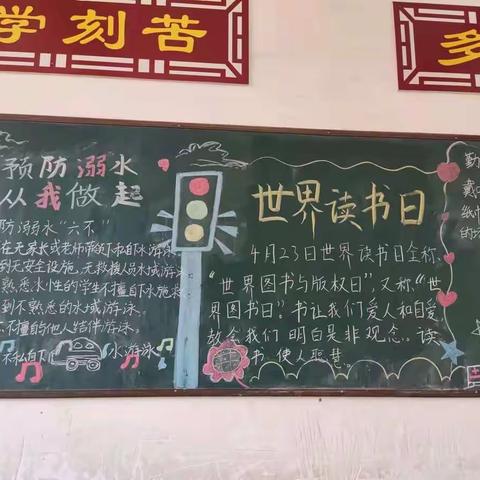 学刻苦
多
预防溺水
从我做起
防溺水"六不"
在无家长或老师带领下私自下水游泳
到无安全设施、无救援人员水域游泳
熟悉水性的学生不擅自下水施救
到不熟悉的水域游泳
不擅自与他人结伴游泳
不私自下水游泳
世界读书日
4月23日世界读书日全称、
"世界图书与版权日",又称"世
界图书日",书让我们爱人和自爱
教会我们明白是非观念。读
书使人聪慧。
勤
戴
纸巾
的